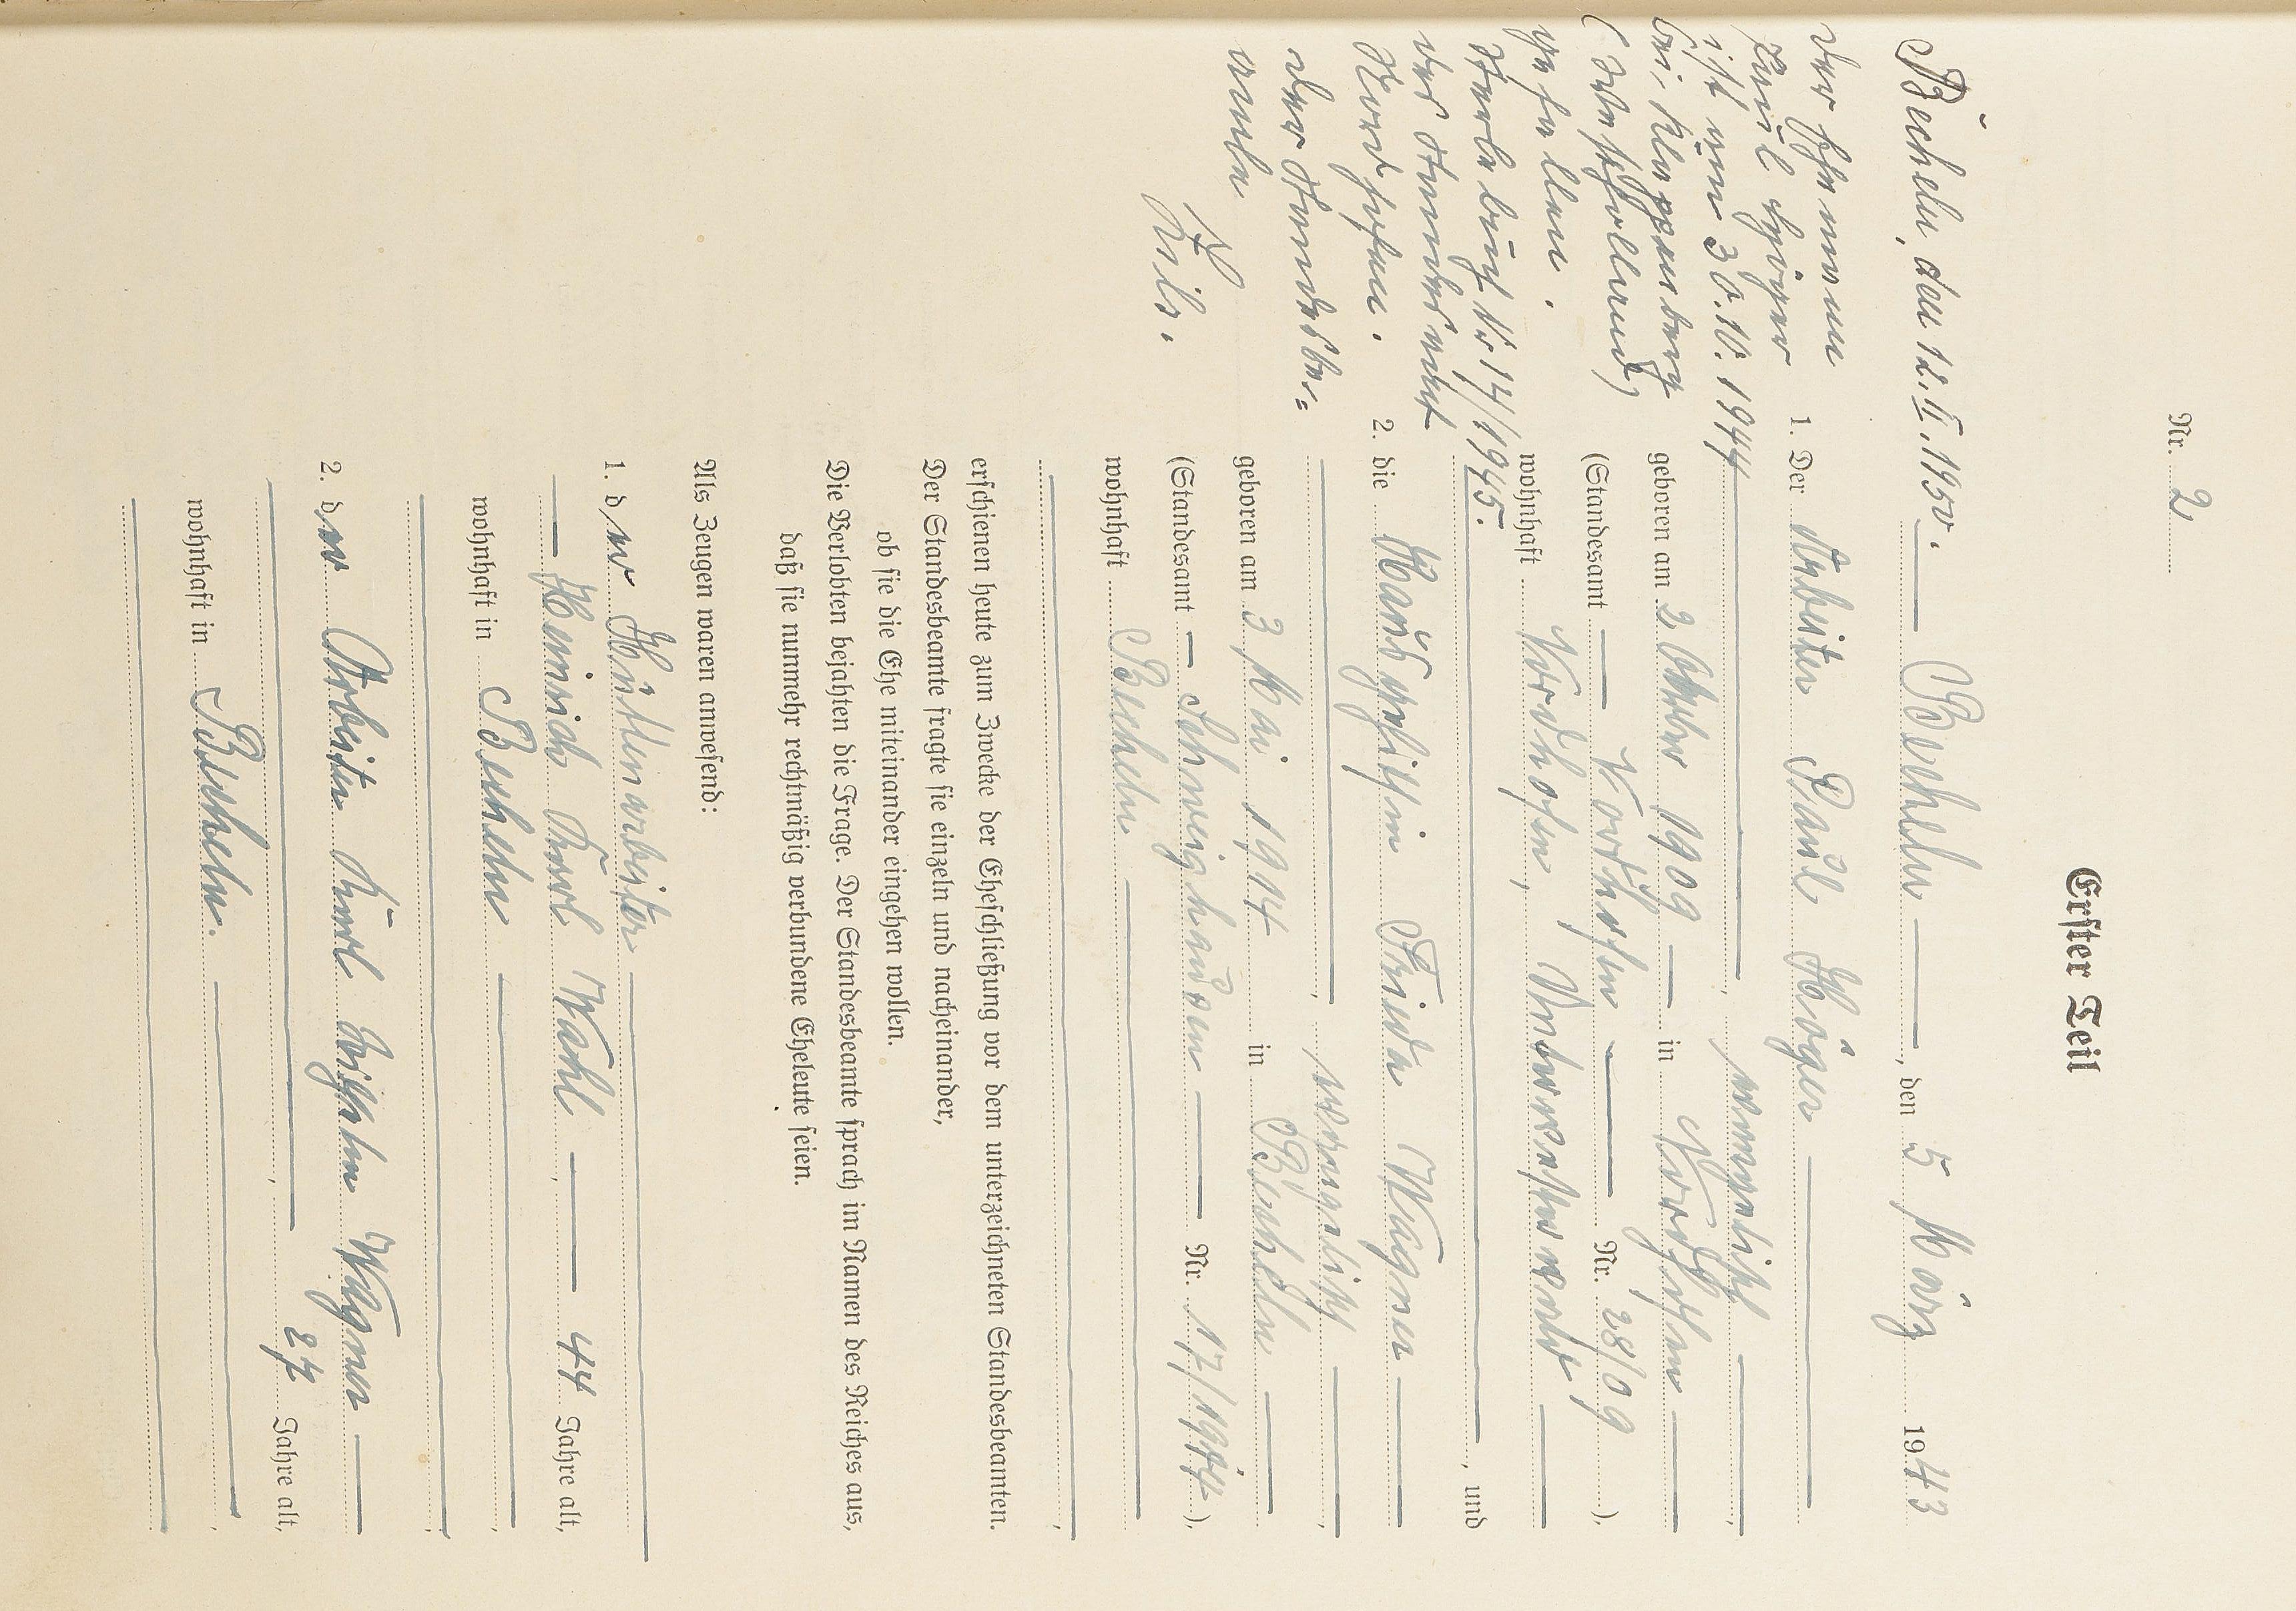 Nr. 2
Erster Teil
Becheln, den 5 März 1943
1. Der Arbeiter Paul Höger
evangelisch,
geboren am 2. Oktober 1909 in Nordhofen
(Standesamt Nordhofen Nr. 28/09),
wohnhaft Nordhofen, Unterwesterwald
, und
2. die Hausgehilfin Frieda Wagner
, evangelisch,
geboren am 3 Mai 1914 in Becheln
(Standesamt Schweighausen Nr. 17/1914),
wohnhaft Becheln
,
erschienen heute zum Zwecke der Eheschließung vor dem unterzeichneten Standesbeamten.
Der Standesbeamte fragte sie einzeln und nacheinander,
ob sie die Ehe miteinander eingehen wollen.
Die Verlobten bejahten die Frage. Der Standesbeamte sprach im Namen des Reiches aus,
daß sie nunmehr rechtmäßig verbundene Eheleute seien.
Als Zeugen waren anwesend:
1. der Hüttenarbeiter
Heinrich Karl Wahl, 44 Jahre alt,
wohnhaft in Becheln,
,
2. der Arbeiter Karl Wilhelm Wagner
, 27 Jahre alt,
wohnhaft in Becheln.,
Becheln, den 12. II. 1950.
Der Ehemann
Paul Höger
ist am 30.10. 1944
bei
gefallen.
Sterbebuch Nr 14/1945.
des Standesamt
Nordhofen.
Der Standesbe=
amte